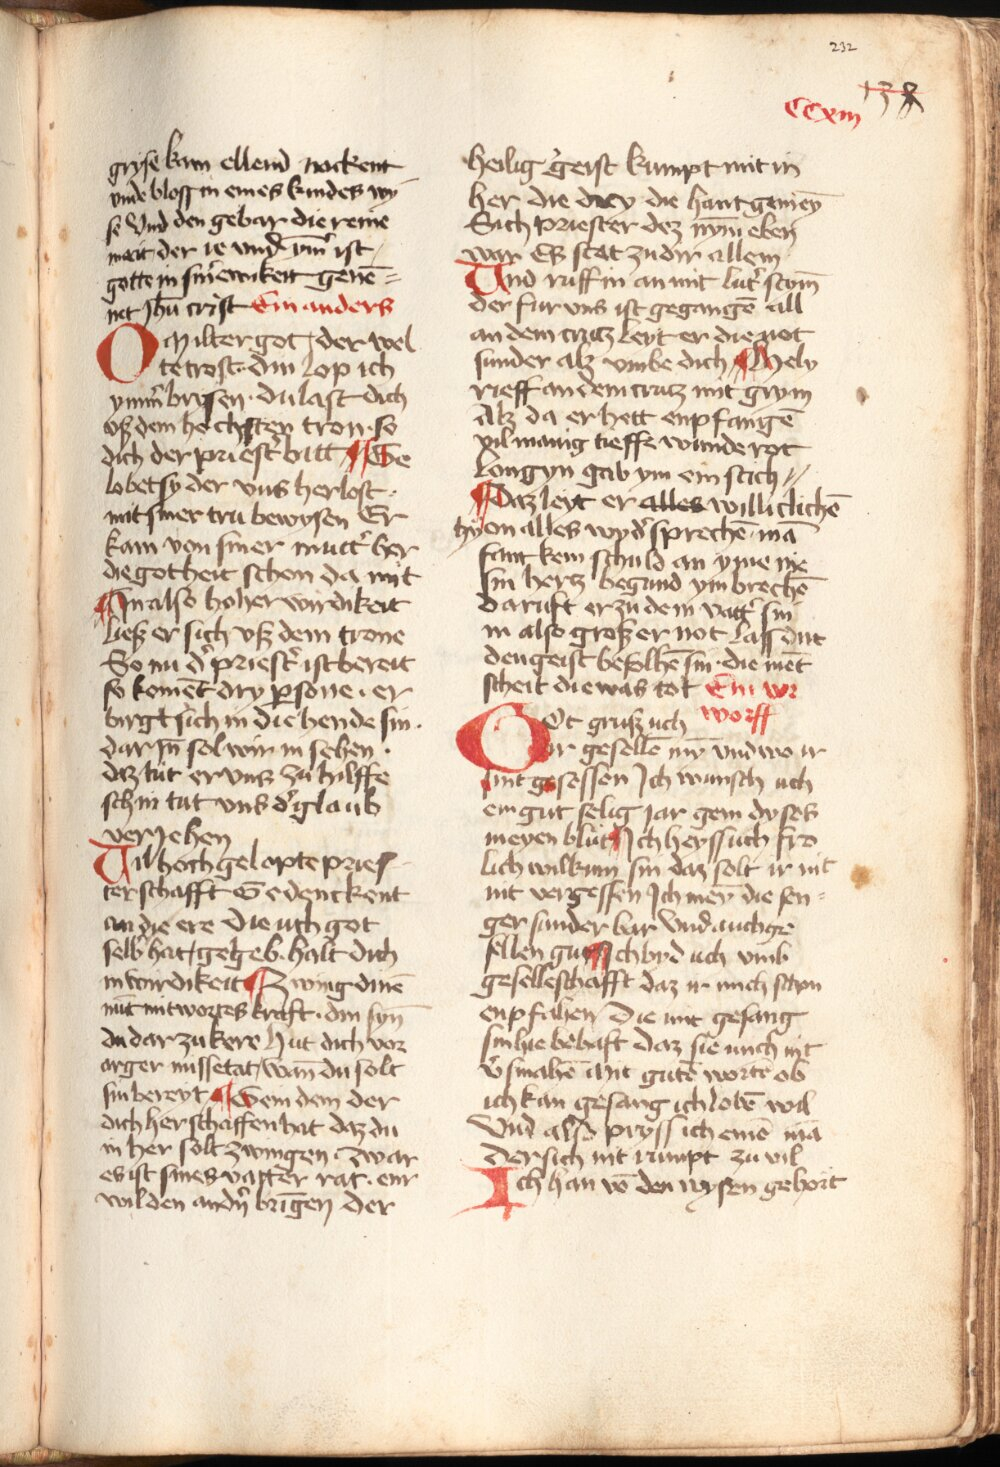 232
138
CCxiii
gryse kam ellend nackent
vnde bloss in eines kindes wy
se Vnd den gebar die reine
mait der ie vnd ym̄ ist
gotte in sin̄ ewikeit gene=
net Jhū crist Ein anders
O Milter got der wel
te trost. din lop ich
ym̄ brysen. du last dich
vß dem hochsten tron. so
dich der priestr̄ bitt ¶ Ge
lobet sy der vns herlost.
mit siner tru bewysen Er
kam von siner mutt̄ her
die gotheit schon da mit
¶ In also hoher wirdikeit
ließ er sich vß dem trone
So nu d̄ priestr̄ ist bereit
so koment dry psone. er
birgt sich in die hende sin.
dar Jn̄ sol wir in sehen.
daz tut er vns zu hilffe
schin tut vns d̄ glaub
verJehen
Vil hochgelopte pries
terschafft Gedenckent
an die ere Die uch got
selb hat gegeb. halt dich
in wirdikeit ¶ Zwing dinē
mūt mit wortes kraft. din syn̄
du dar zu kere Hut dich vor
arger missetat wan̄ du solt
sin bereyt ¶ Wem dem der
dich herschaffen hat daz du
in her solt zwingen. Zwar
es ist sines vatter rat. eur
wilden andn̄ bringen der
heilig geist kumpt mit in
her die drey die hant gemeȳ
Sich priester dez nym̄ eben
war Es stat zu dir allein
Vnd ruff in an mit lut̄ stym̄
der fur vns ist gegangē all
an dem crutz leyt er die not
sunder alz vmbe dich ¶ Hely
rieff an dem crutz mit grym
Alz da er hett enpfangē
vil manig tieffe wunde rot
Longyn gab ym ein stich
¶ Daz leyt er alles willicliclichē
hyon alles wyd̄ sprechē. mā
fant kein schuld an yme nie
Sin hertz begund ym brechē
Da ruft er zu dem vatt̄ sin
in also großer not lass dut
den geist befolhē sin. die mēt
scheit die was tot Ein vor
worff
Got gruß uch
Jr geselle my̅ vnd wo ir
sint gesessen Jch wunsch uch
ein gut selig jar gein dyses
meyen blut ¶ Jch heyss uch fro
lich wilkum sin daz solt ir nit
nit vergessen Jch mey̅ die sen=
ger sunder bar Vnd auch ge
sellen gut ¶ Jch byd uch vmb
geselleschafft daz ir mich schon
enpfahen Die mit gesang
sin hie behaft Daz sie mich nit
v̄smahē Mit gutē wortē ob
ich kan gesang ich lobē wil
Vnd also pryss ich einē mā
Der sich nit rumpt zu vil
Ich han vō den wysen gehort